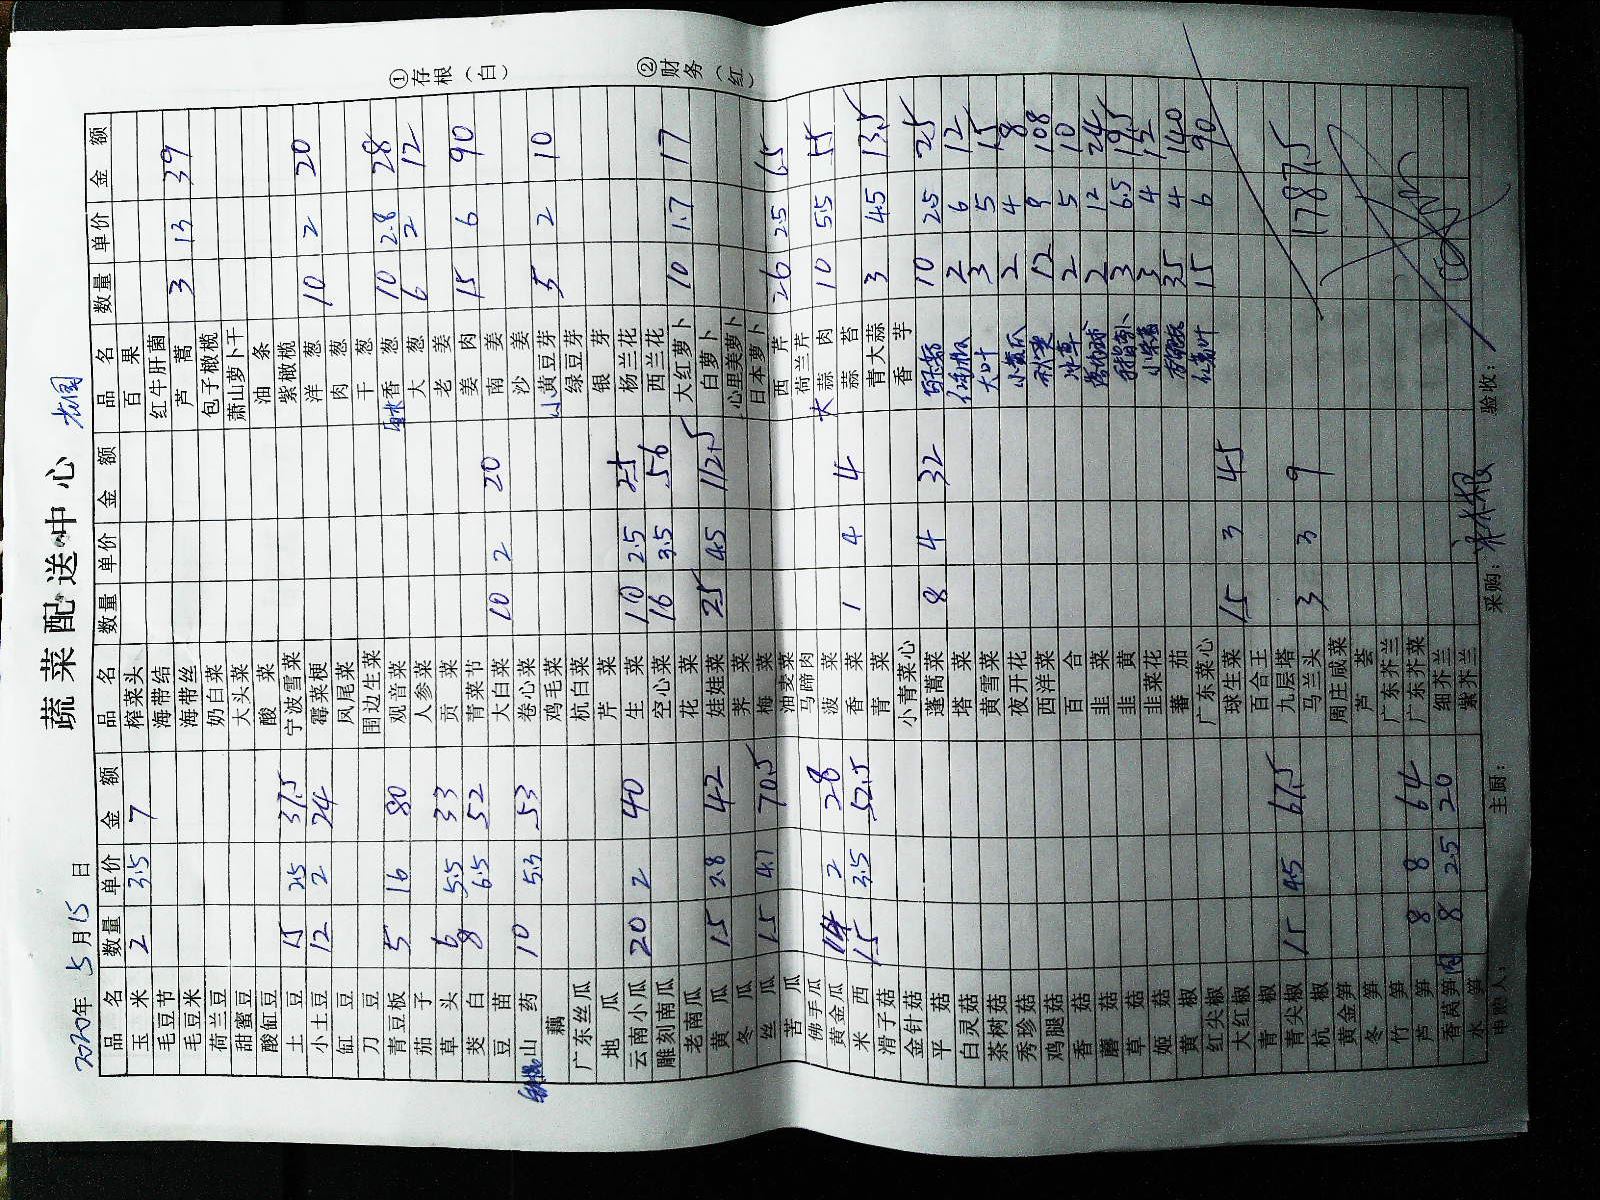 蔬菜配送中心
2020年5月15日
品名 数量 单价 金额
玉米 2 3.5 7
毛豆节
毛豆米
荷兰豆
甜蜜豆
酸缸豆
土豆 15 2.5 37.5
小土豆 12 2 24
缸豆
刀豆
青豆板 5 16 80
茄子
草头 6 5.5 33
茭白 8 6.5 52
豆苗
山药 10 5.3 53
藕
广东丝瓜
地瓜
云南小瓜 20 2 40
雕刻南瓜
老南瓜
黄瓜 15 2.8 42
冬瓜
丝瓜 15 4.7 70.5
苦瓜
佛手瓜
黄金瓜 14 2 28
米西 15 3.5 52.5
滑子菇
金针菇
平菇
白灵菇
茶树菇
秀珍菇
鸡腿菇
香菇
蘑菇
草菇
姬菇
黄椒
红尖椒
大红椒
青椒
青尖椒 15 4.5 67.5
杭椒
黄金笋
冬笋
竹笋
芦笋 8 8 64
香莴笋肉 8 2.5 20
水笋
品名 数量 单价 金额
榨菜头
海带结
海带丝
奶白菜
大头菜
酸菜
宁波雪菜
霉菜梗
凤尾菜
围边生菜
观音菜
人参菜
贡菜
青菜节
大白菜 10 2 20
卷心菜
鸡毛菜
杭白菜
芹菜
生菜 10 2.5 25
空心菜 16 3.5 56
花菜
娃娃菜 25 4.5 112.5
荠菜
梅菜
油麦菜
马蹄肉
菠菜
香菜 1 4 4
青菜
小青菜心
蓬蒿菜 8 4 32
塔菜
黄雪菜
夜开花
西洋菜
百合
韭菜
韭黄
韭菜花
蕃茄
广东菜心
球生菜 15 3 45
百合王
九层塔
马兰头 3 3 9
周庄咸菜
芦荟
广东芥兰
广东芥菜
细芥兰
紫芥兰
品名 数量 单价 金额
百果
红牛肝菌
芦蒿 3 13 39
包子橄榄
萧山萝卜干
油条
紫橄榄
洋葱 10 2 20
肉葱
干葱
香葱 10 2.8 28
大葱 6 2 12
老姜
姜肉 15 6 90
南姜
沙姜
小黄豆芽 5 2 10
绿豆芽
银芽
杨兰花
西兰花
大红萝卜 10 1.7 17
白萝卜
心里美萝卜
日本萝卜
西芹 26 2.5 65
荷兰芹
大蒜肉 10 5.5 55
蒜苔
青大蒜 3 4.5 13.5
香芋
10 2.5 25
2 6 12
大叶 3 5 15
小黄瓜 2 4 8
秋葵 12 9 108
冰草 2 5 10
2 12 24
3 6.5 19.5
3 4 12
35 4 140
15 6 90
1787.5
①存根（白）
②财务（红）
申购人：
主厨：
采购：
验收：